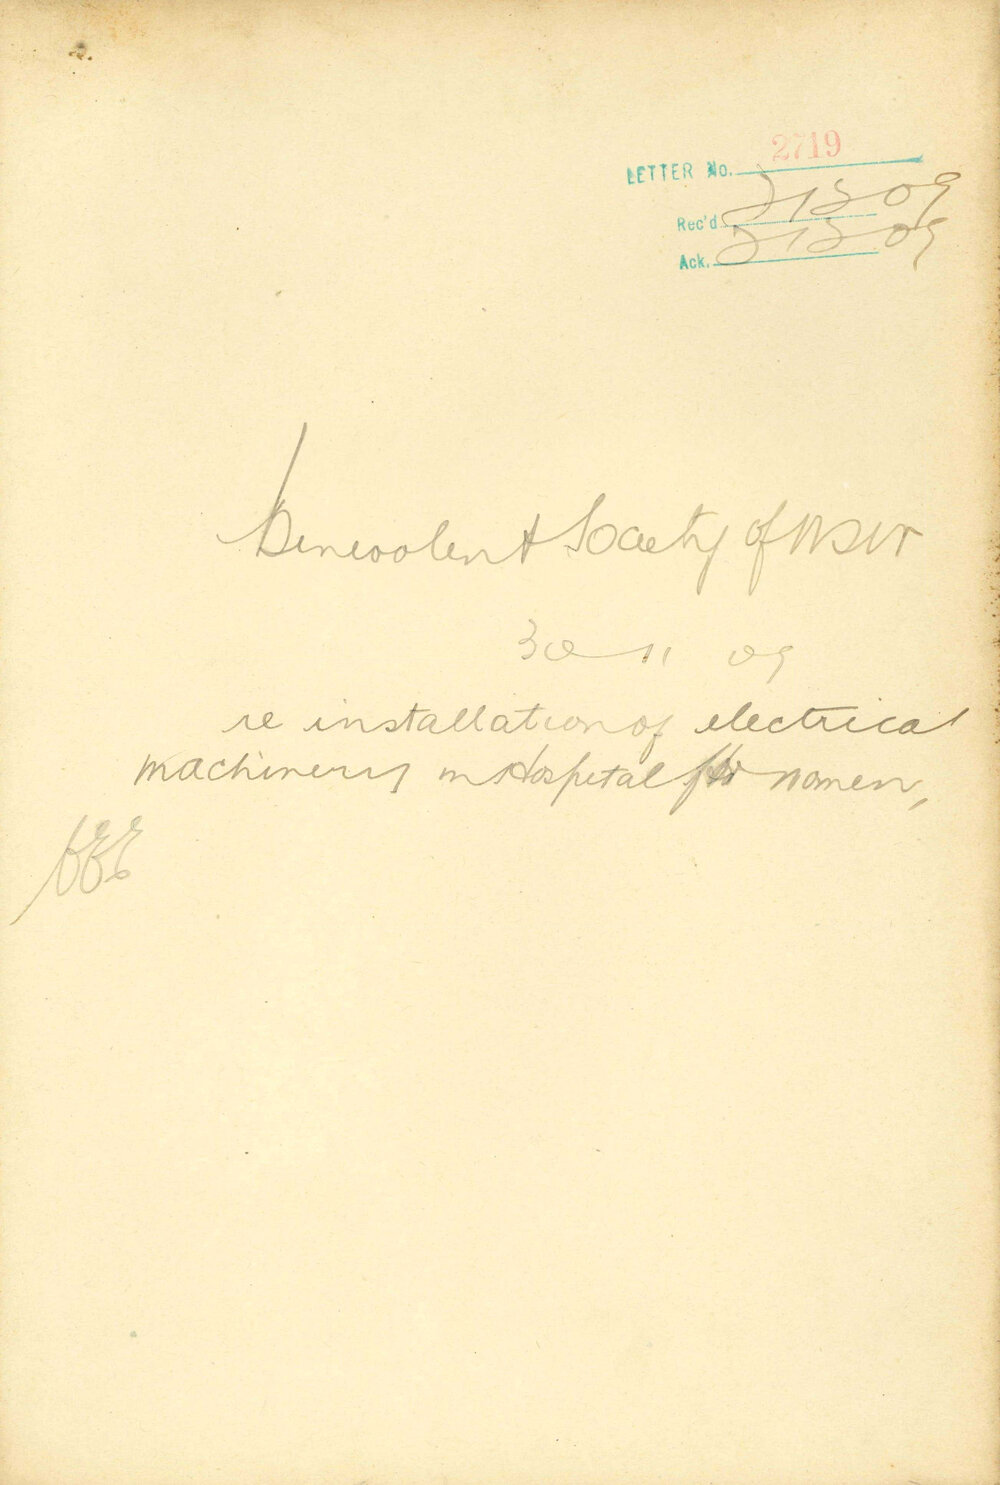 LETTER No. 2719
Rec'd 2 12 09
Ack. 2 12 09
Benevolent Society of NSW
30 11 09
re installation of electrical
machinery in Hospital for women,